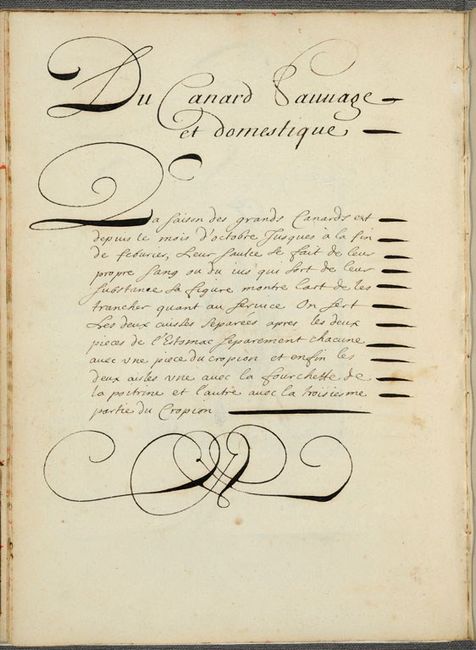 Du Canard Sauuage
et domestique
La saison des grands Canards est
depuis le mois d'octobre Jusques à la fin
de feburier, Leur saulce se fait de leur
propre sang ou du ius qui sort de leur
substance La figure montre l'art de les
trancher quant au seruice On sert
Les deux cuisses separées apres les deux
pieces de l'Estomac separement chacune
auec vne piece du cropion et enfin les
deux aisles vne auec la fourchette de
la poitrine et l'autre auec la troisiesme
partie du Cropion